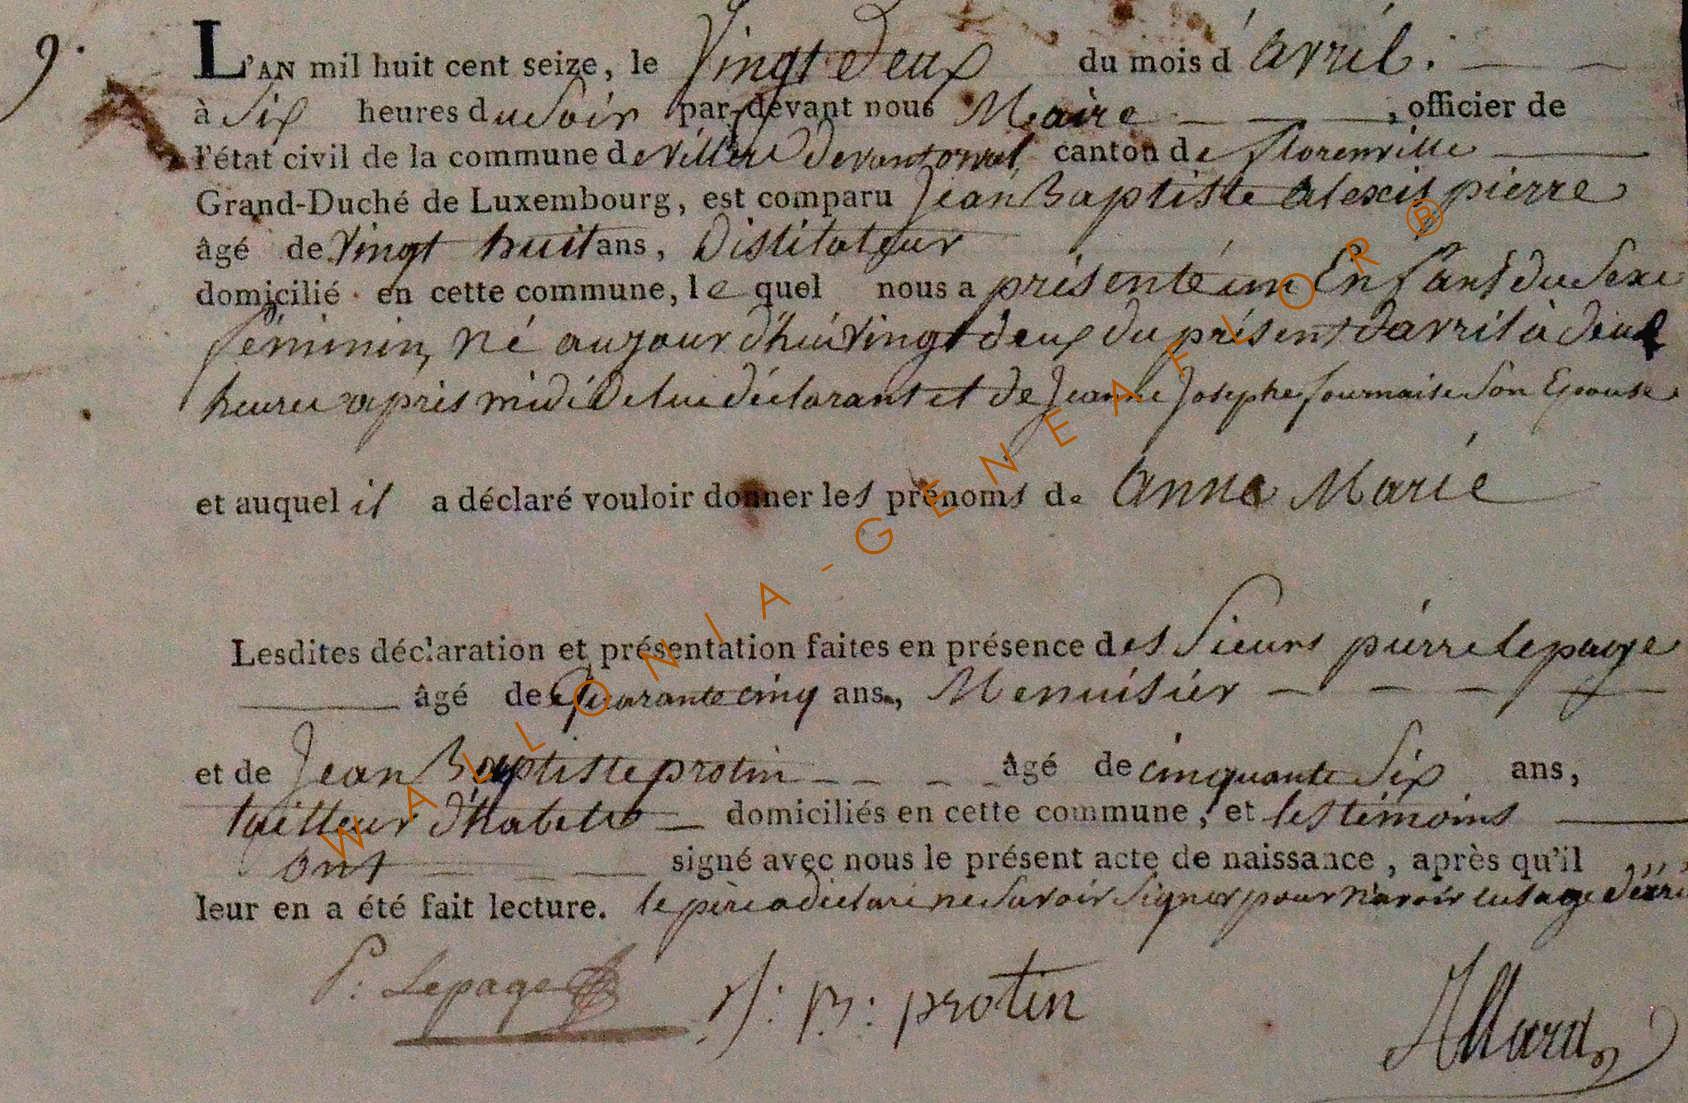 9.
L'AN mil huit cent seize, le Vingt deux du mois d'avril. 
à Six heures du Soir par-devant nous Maire , officier de
l'état civil de la commune de Villers devant orval canton de florenville
Grand-Duché de Luxembourg, est comparu Jean Baptiste alexis pierre
âgé de Vingt huit ans, Distilateur
domicilié en cette commune, le quel nous a présenté un Enfant du Sexe
féminin, né aujourd'hui Vingt deux du présent d'avril à deux
heures après midi De lui déclarant et de Jeanne Josephe fournaise Son Epouse
et auquel il a déclaré vouloir donner les prénoms de Anne Marie
Lesdites déclaration et présentation faites en présence des Sieurs pierre lepage
âgé de Quarante cinq ans, Menuisier
et de Jean Baptiste protin âgé de cinquante Six ans,
tailleur d'habits domiciliés en cette commune, et les témoins
ont signé avec nous le présent acte de naissance, après qu'il
leur en a été fait lecture. le père a déclaré ne Savoir Signer pour n'avoir l'usage d'écri
P: Lepage J: B: protin Allard
WALLONIA-GENEAFLOR ®